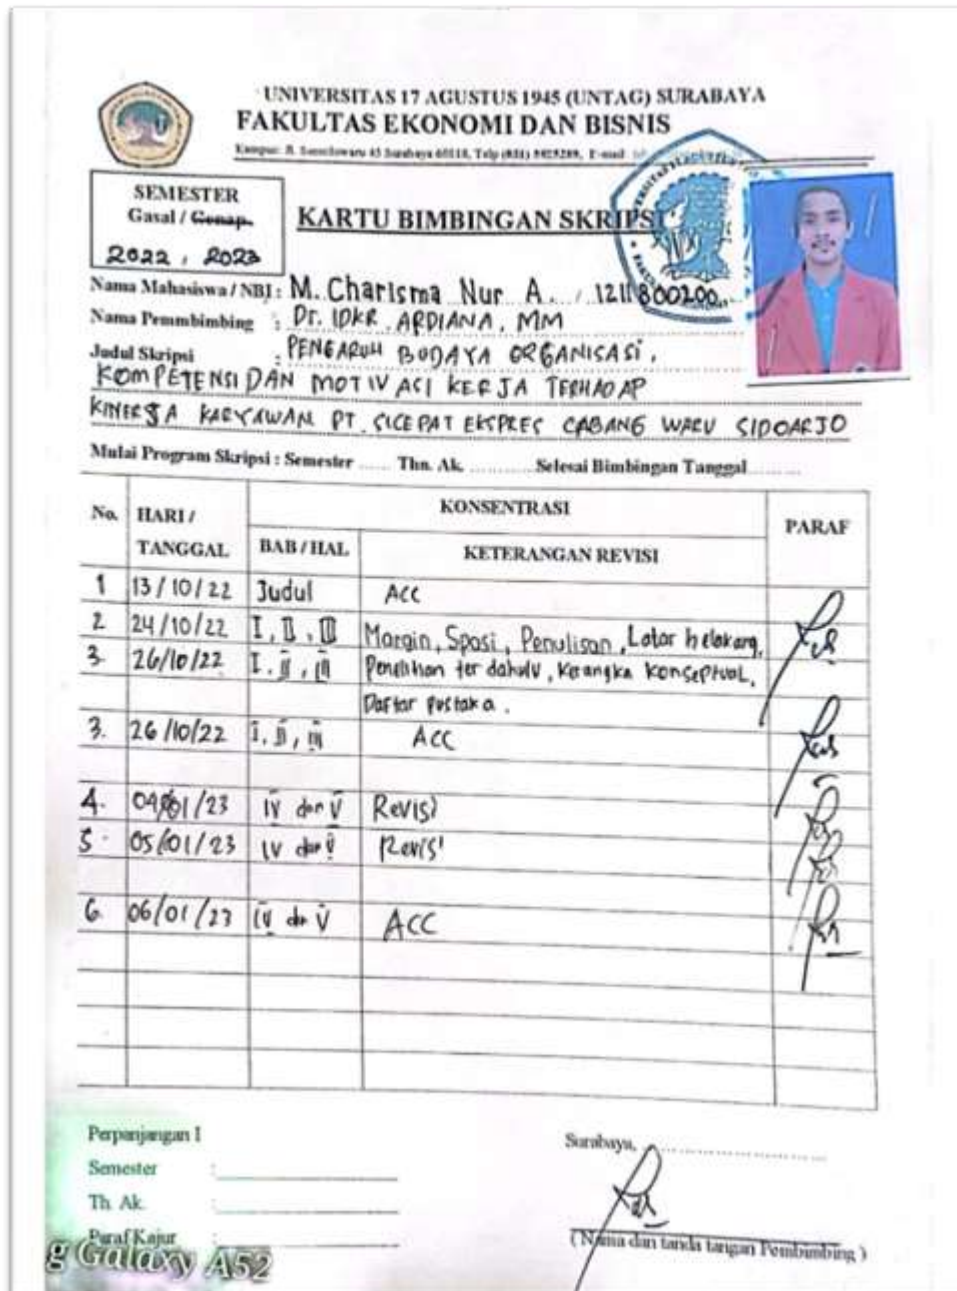 UNIVERSITAS 17 AGUSTUS 1945 (UNTAG) SURABAYA
FAKULTAS EKONOMI DAN BISNIS
Kampus: Jl. Semolowaru 45 Surabaya 60118, Telp (031) 5925289, E-mail
SEMESTER
Gasal / Genap.
2022 / 2023
KARTU BIMBINGAN SKRIPSI
Nama Mahasiswa / NBI : M. Charisma Nur A. / 1211800200
Nama Pemmbimbing : Dr. IDKR. ARDIANA, MM
Judul Skripsi : PENGARUH BUDAYA ORGANISASI,
KOMPETENSI DAN MOTIVASI KERJA TERHADAP
KINERJA KARYAWAN PT. SICEPAT EKSPRES CABANG WARU SIDOARJO
Mulai Program Skripsi : Semester ...... Thn. Ak. ............ Selesai Bimbingan Tanggal..........
No. HARI / TANGGAL KONSENTRASI PARAF
BAB / HAL KETERANGAN REVISI
1 13/10/22 Judul ACC
2 24/10/22 I, II, III Margin, Spasi, Penulisan, Latar belakang,
3. 26/10/22 I, II, III Penelitian ter dahulu, Kerangka Konseptual,
Daftar Pustaka.
3. 26/10/22 I, II, III ACC
4. 04/01/23 IV dan V Revisi
5. 05/01/23 IV dan V Revisi
6. 06/01/23 IV dan V ACC
Perpanjangan I
Semester :
Th. Ak. :
Paraf Kajur :
Surabaya,
( Nama dan tanda tangan Pembimbing )
g Galaxy A52